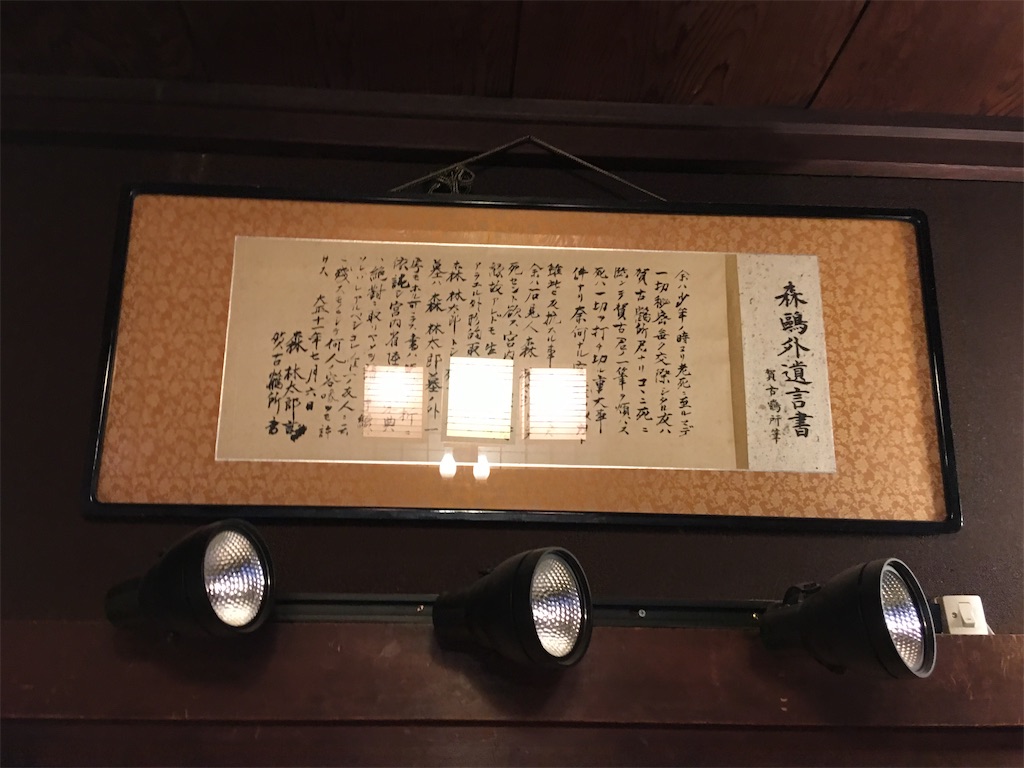 森鷗外遺言書
賀古鶴所筆
余ハ少年ノ時ヨリ老死ニ至ルマデ
一切秘密無ク交際シタル友ハ
賀古鶴所君ナリコヽニ死ニ
臨ンテ賀古君ノ一筆ヲ煩ハス
死ハ一切ヲ打チ切ル重大事
件ナリ奈何ナル
雖此ニ反抗スル事
余ハ石見人森
死セント欲ス宮内
縁故アレドモ生
アラユル外形的取
森林太郎トシテ死
墓ハ森林太郎墓ノ外一
字モホル可ラス書ハ 折ニ
依託シ宮内省陸 典
ハ絶對ニ取リヤメヲ
ソレゾレアルベシコレ唯一ノ友人ニ云
ヒ殘スモノニシテ何人ノ容喙ヲモ許
サス
大正十一年七月六日
森林太郎言
賀古鶴所書